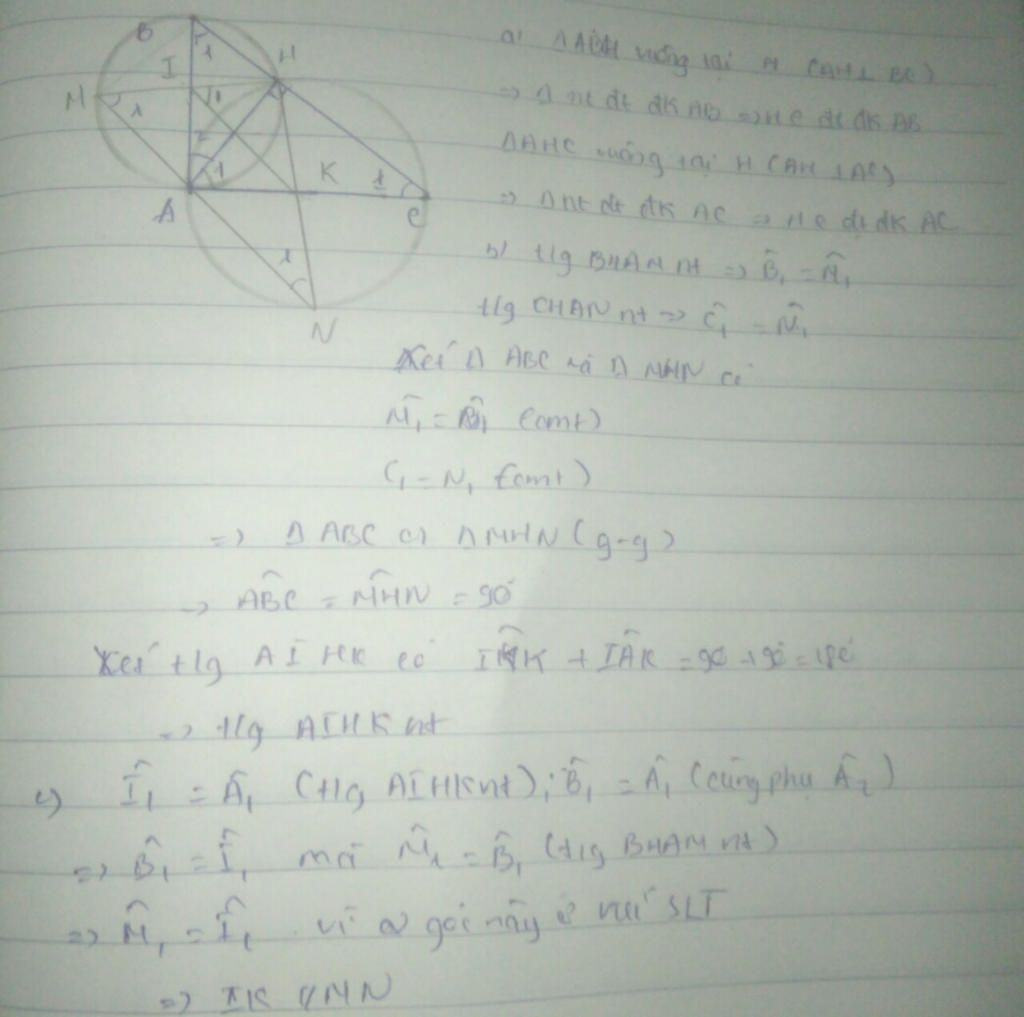 B
H
I
1
M
1
1
2
1
K
1
A
C
1
N
a) Δ ABH vuông tại H (AH ⊥ BC)
=> Δ nt đt đk AB => H ∈ đt đk AB
ΔAHC vuông tại H (AH ⊥ AC)
=> Δ nt đt đk AC => H ∈ đt đk AC
b) t/g BHAM nt => B̂₁ = M̂₁
t/g CHAN nt => Ĉ₁ = N̂₁
Xét Δ ABC và Δ MHN có
M̂₁ = B̂₁ (cmt)
C₁ = N₁ (cmt)
=> Δ ABC ∽ Δ MHN (g-g)
=> ABC = MHN = 90°
Xét t/g AIHK có IHK + IÂK = 90 + 90 = 180
=> t/g AIHK nt
c) Î₁ = Â₁ (t/g AIHK nt); B̂₁ = Â₁ (cùng phụ Â₂)
=> B̂₁ = Î₁ mà M̂₁ = B̂₁ (t/g BHAM nt)
=> M̂₁ = Î₁ vì 2 góc này ở SLT
=> IK // MN